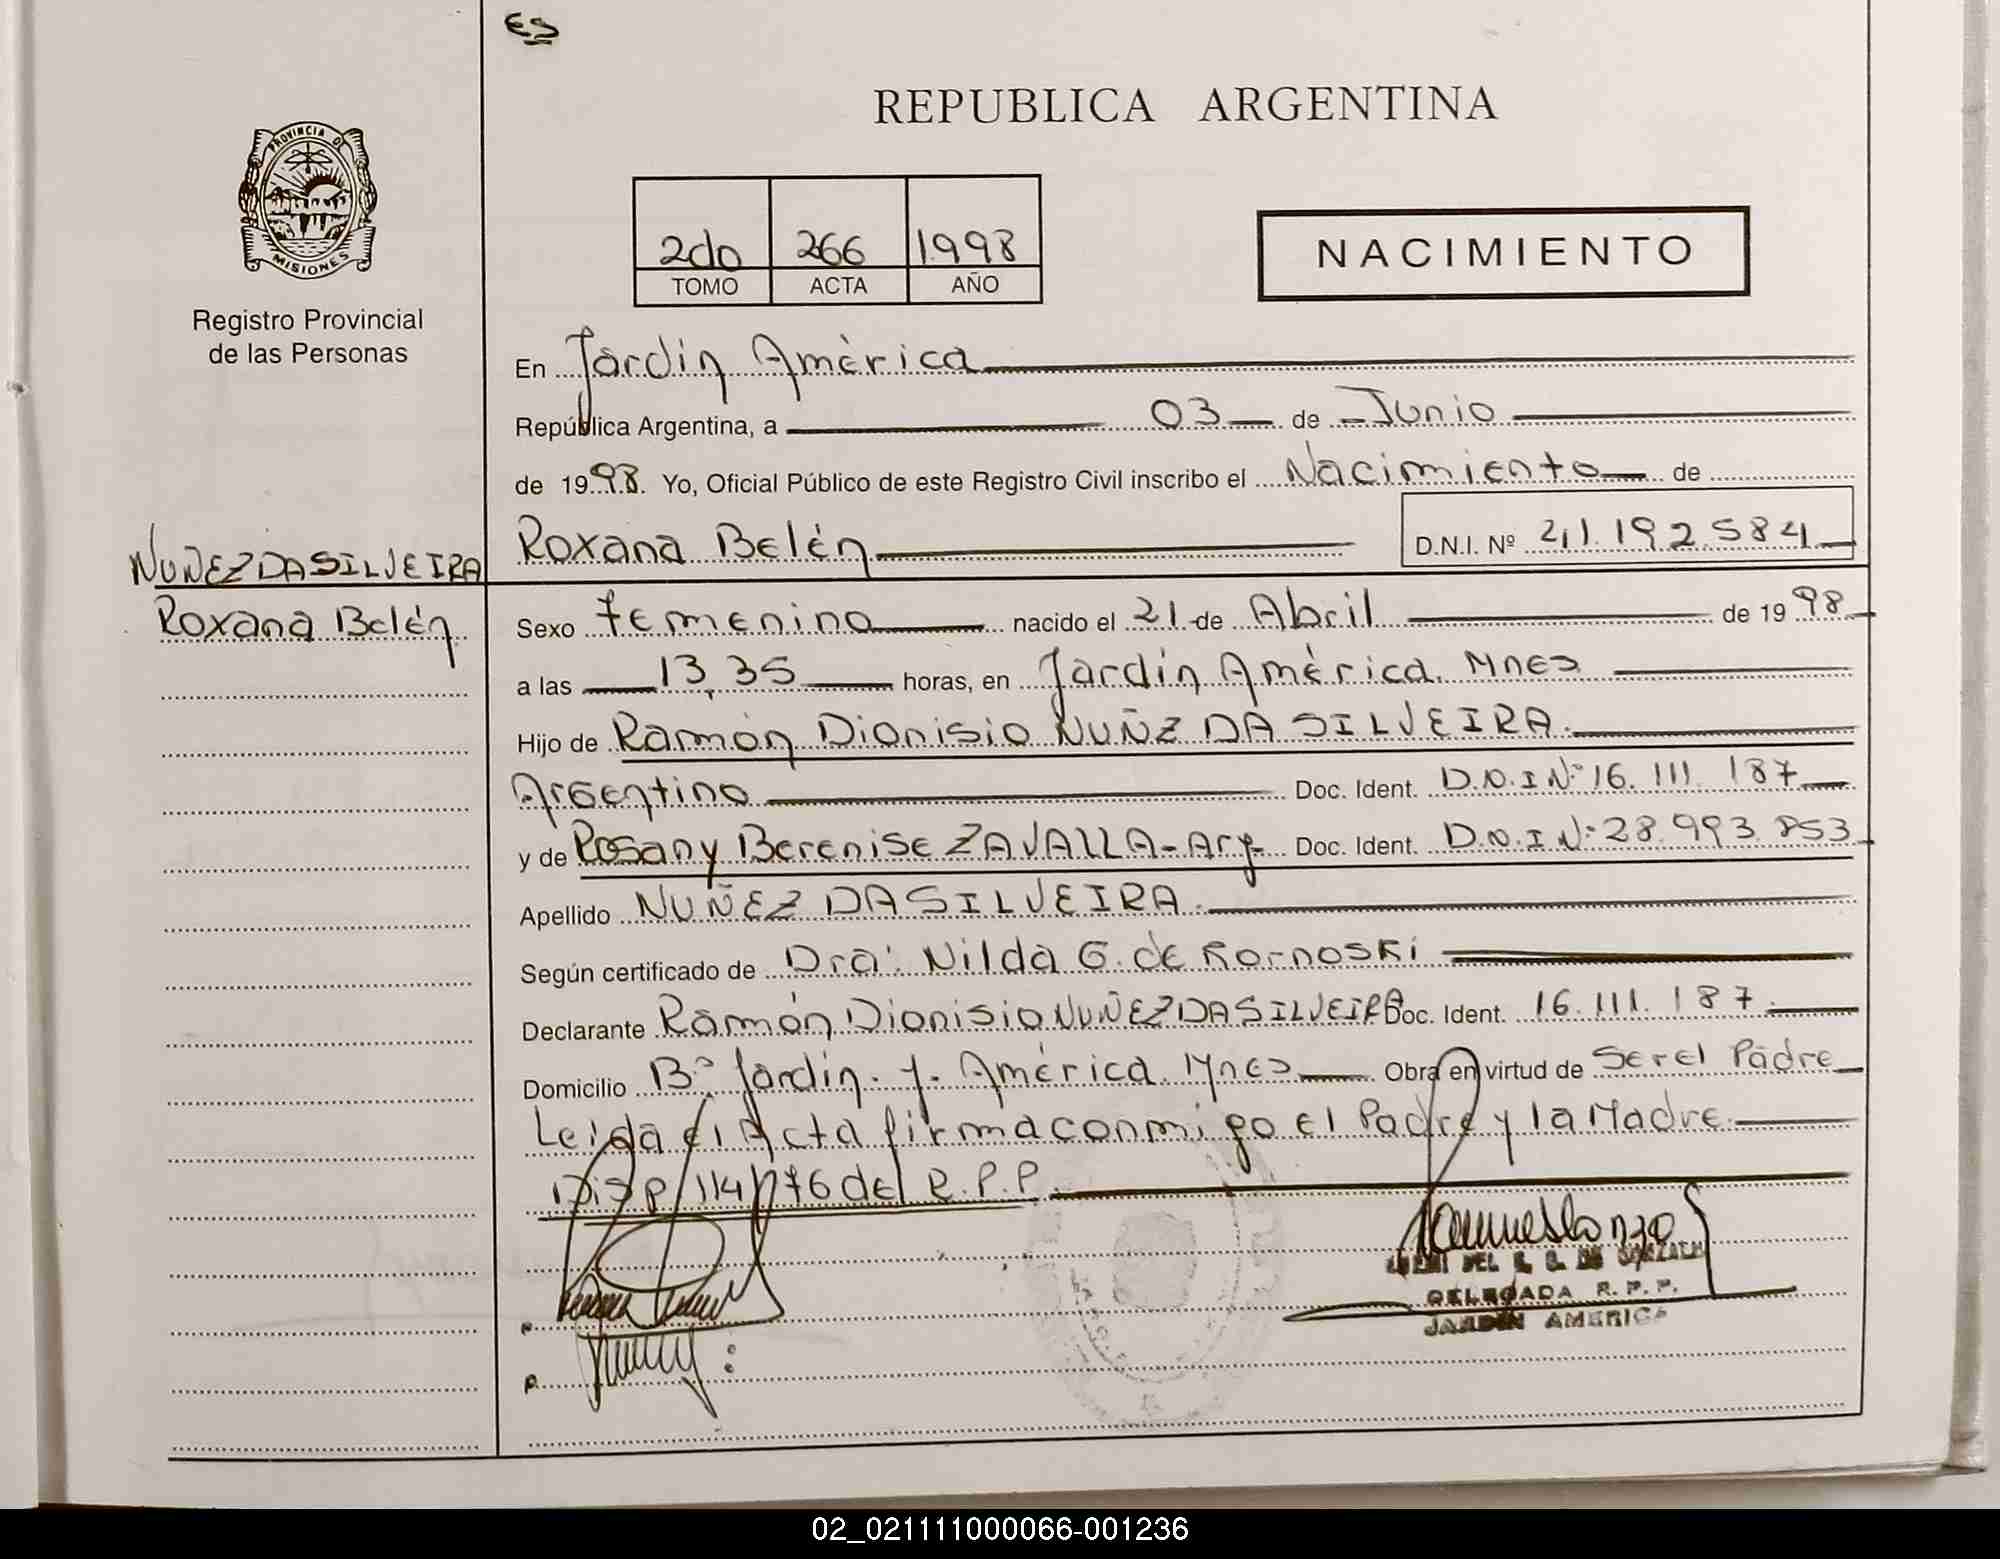 ES
REPUBLICA ARGENTINA
PROVINCIA DE
MISIONES
Registro Provincial
de las Personas
2do 266 1998
TOMO ACTA AÑO
NACIMIENTO
En Jardín América
República Argentina, a 03 de Junio
de 1998. Yo, Oficial Público de este Registro Civil inscribo el Nacimiento de
Roxana Belén D.N.I. Nº 41.192.584
NUÑEZ DA SILVEIRA
Roxana Belén
Sexo Femenino nacido el 21 de Abril de 1998
a las 13,35 horas, en Jardín América. Mnes
Hijo de Ramón Dionisio NUÑZ DA SILVEIRA.
Argentino Doc. Ident. D.N.I Nº 16.111.187
y de Rosany Berenise ZAVALLA - Arg. Doc. Ident. D.N.I N: 28.993.853
Apellido NUÑEZ DA SILVEIRA.
Según certificado de Dra: Nilda G. de
Declarante Ramón Dionisio NUÑEZ DA SILVEIRA Doc. Ident. 16.111.187.
Domicilio Bº Jardín. J. América. Mnes Obra en virtud de Ser el Padre
Leida el Acta firma conmigo el Padre y la Madre.
Disp 114/76 del R.P.P.
DEL R. G. DE
DELEGADA R. P. P.
JARDIN AMERICA
02_021111000066-001236